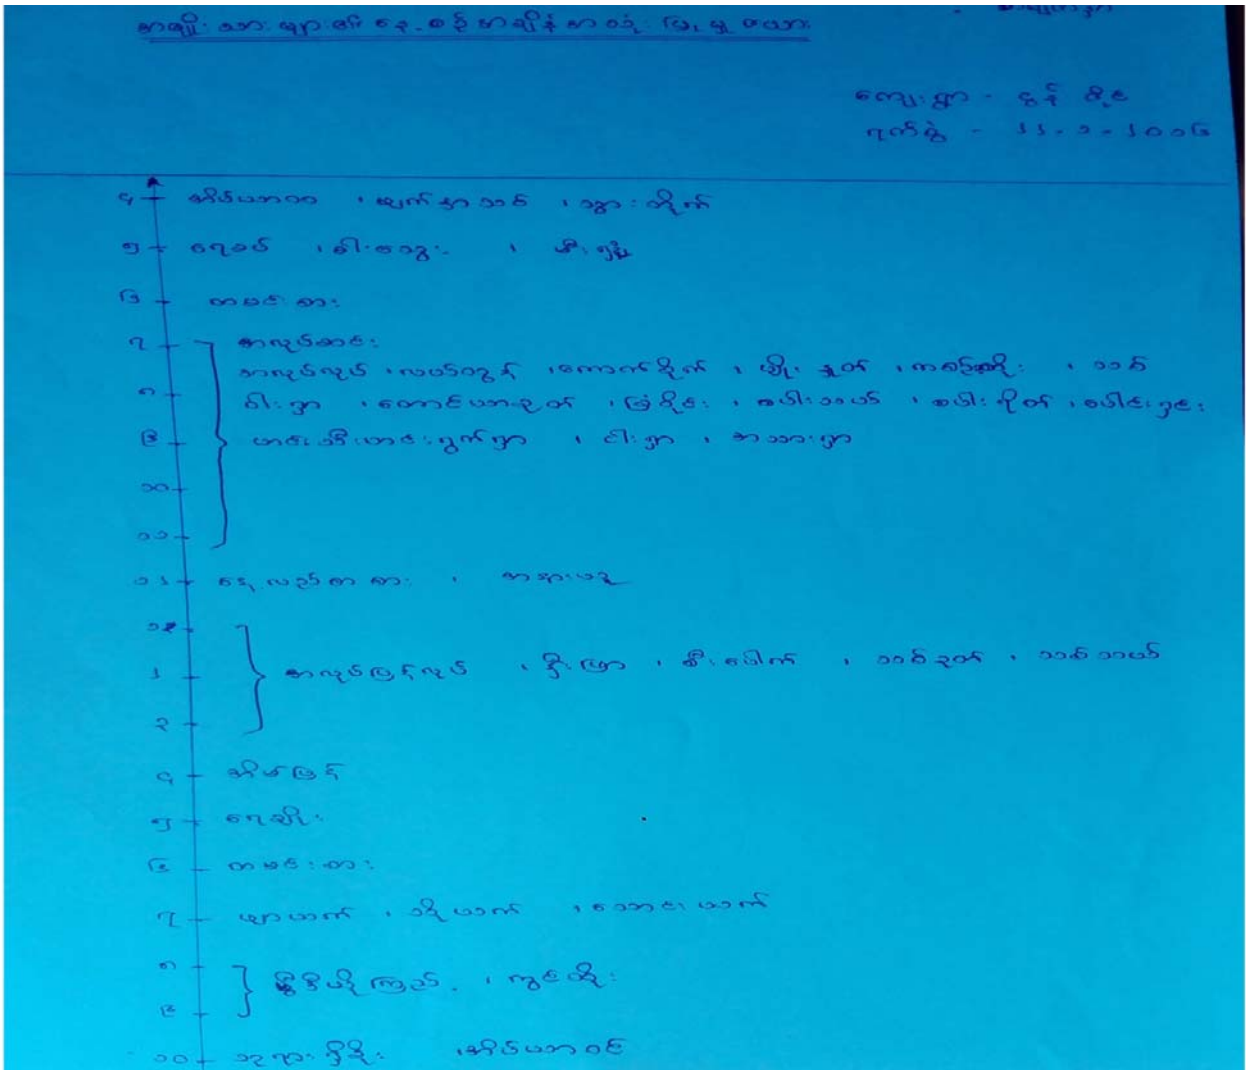 အမျိုးသားများ၏ နေ့စဉ်အချိန်အသုံးပြုမှုဇယား
ကျေးရွာ - ဇွန်
ရက်စွဲ - ၂၂-၁-၂၀၁၆
၄ အိပ်ယာထ ၊ မျက်နှာသစ် ၊ သွားတိုက်
၅ ရေခပ် ၊ ဓါးသွေး ၊ မီးရှို့
၆ ထမင်းစား
၇ အလုပ်ဆင်း
အလုပ်လုပ် ၊ လယ်ထွန် ၊ ကောက်စိုက် ၊ မျိုးနှုတ် ၊ ကစဉ်းထိုး ၊ သစ်
၈ ဝါးရှာ ၊ တောင်ယာခုတ် ၊ ခြံစိုင်း ၊ စပါးသယ် ၊ စပါးရိတ် ၊ စပါးရှင်း
၉ ဟင်းသီးဟင်းရွက်ရှာ ၊ ငါးရှာ ၊ အသားရှာ
၁၀
၁၁
၁၂ နေ့လည်စာစား ၊ အနားယူ
၁
၂ အလုပ်ပြန်လုပ် ၊ နှီးဖြာ ၊ စီးပေါက် ၊ သစ်ခုတ် ၊ သစ်သယ်
၃
၄ အိမ်ပြန်
၅ ရေချိုး
၆ ထမင်းစား
၇ ဖျာယက် ၊ ယက် ၊ တောင်းယက်
၈ ဗွီဒီယိုကြည့် ၊ ကွင်းထိုး
၉
၁၀ ဘုရားရှိခိုး ၊ အိပ်ယာဝင်